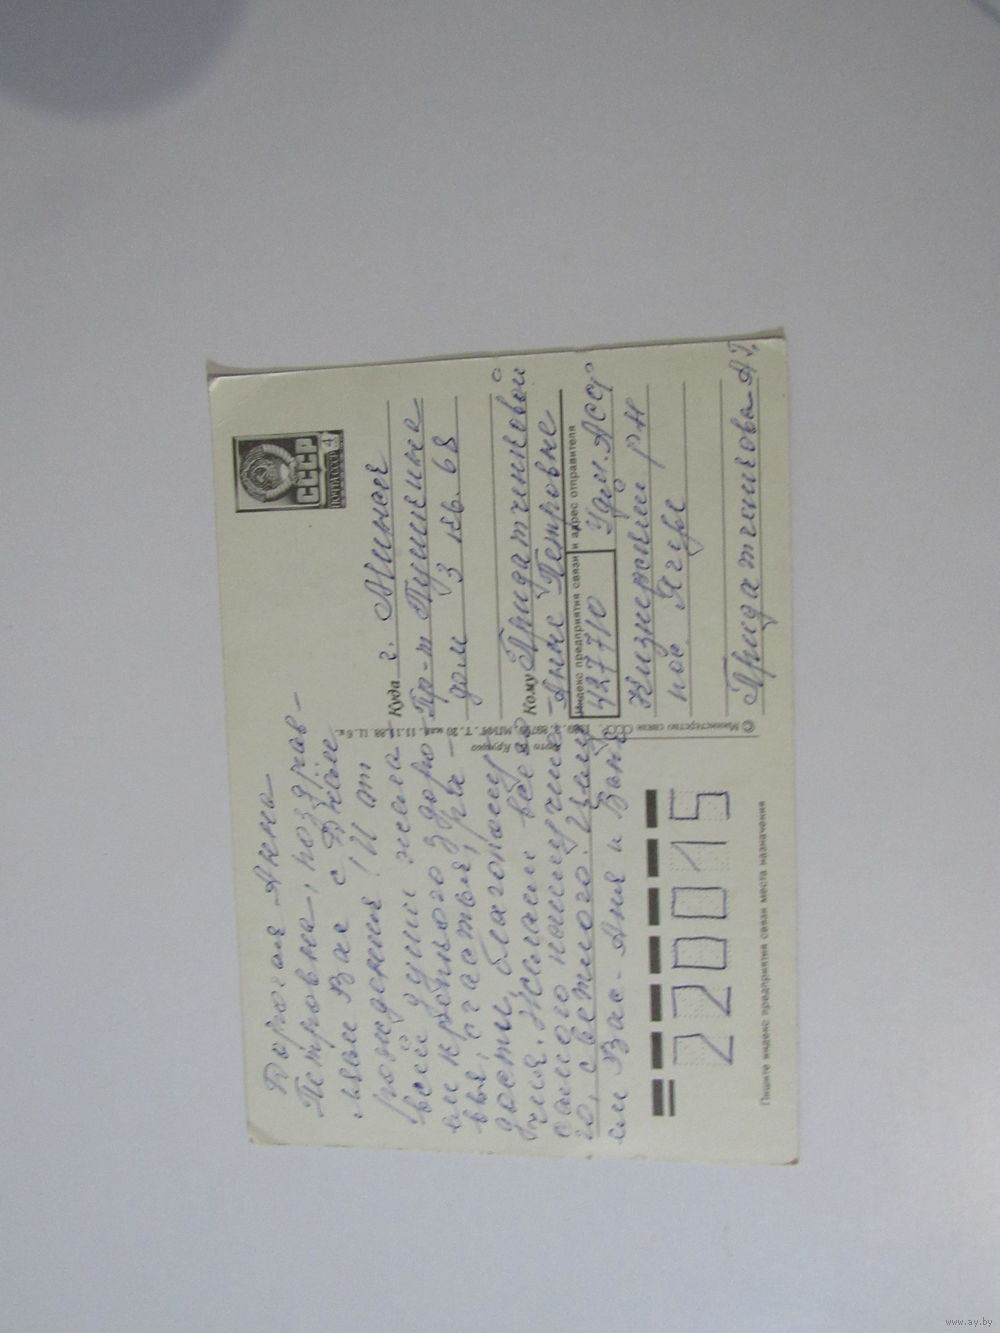 Дорогая Анна
Петровна, поздрав-
ляем Вас с Днём
рождения! И от
всей души жела
ем крепкого здоро
вья, счастья, ра-
дости, благополу-
чия. Желаем всего
самого наилучше
го, светлого. Целу
ем Вас - Аня и Ваня
СССР
ПОЧТА СССР 4к
Куда г. Минск
Пр-т Пушкина
дом 3 кв. 68
Кому Придатчиковой
Анне Петровне
Индекс предприятия связи и адрес отправителя
427710 Удм. АССР
Кизнерский р-н
пос. Ягул
Придатчикова А Г.
© Министерство связи СССР
220015
Пишите индекс предприятия связи места назначения
www.ay.by